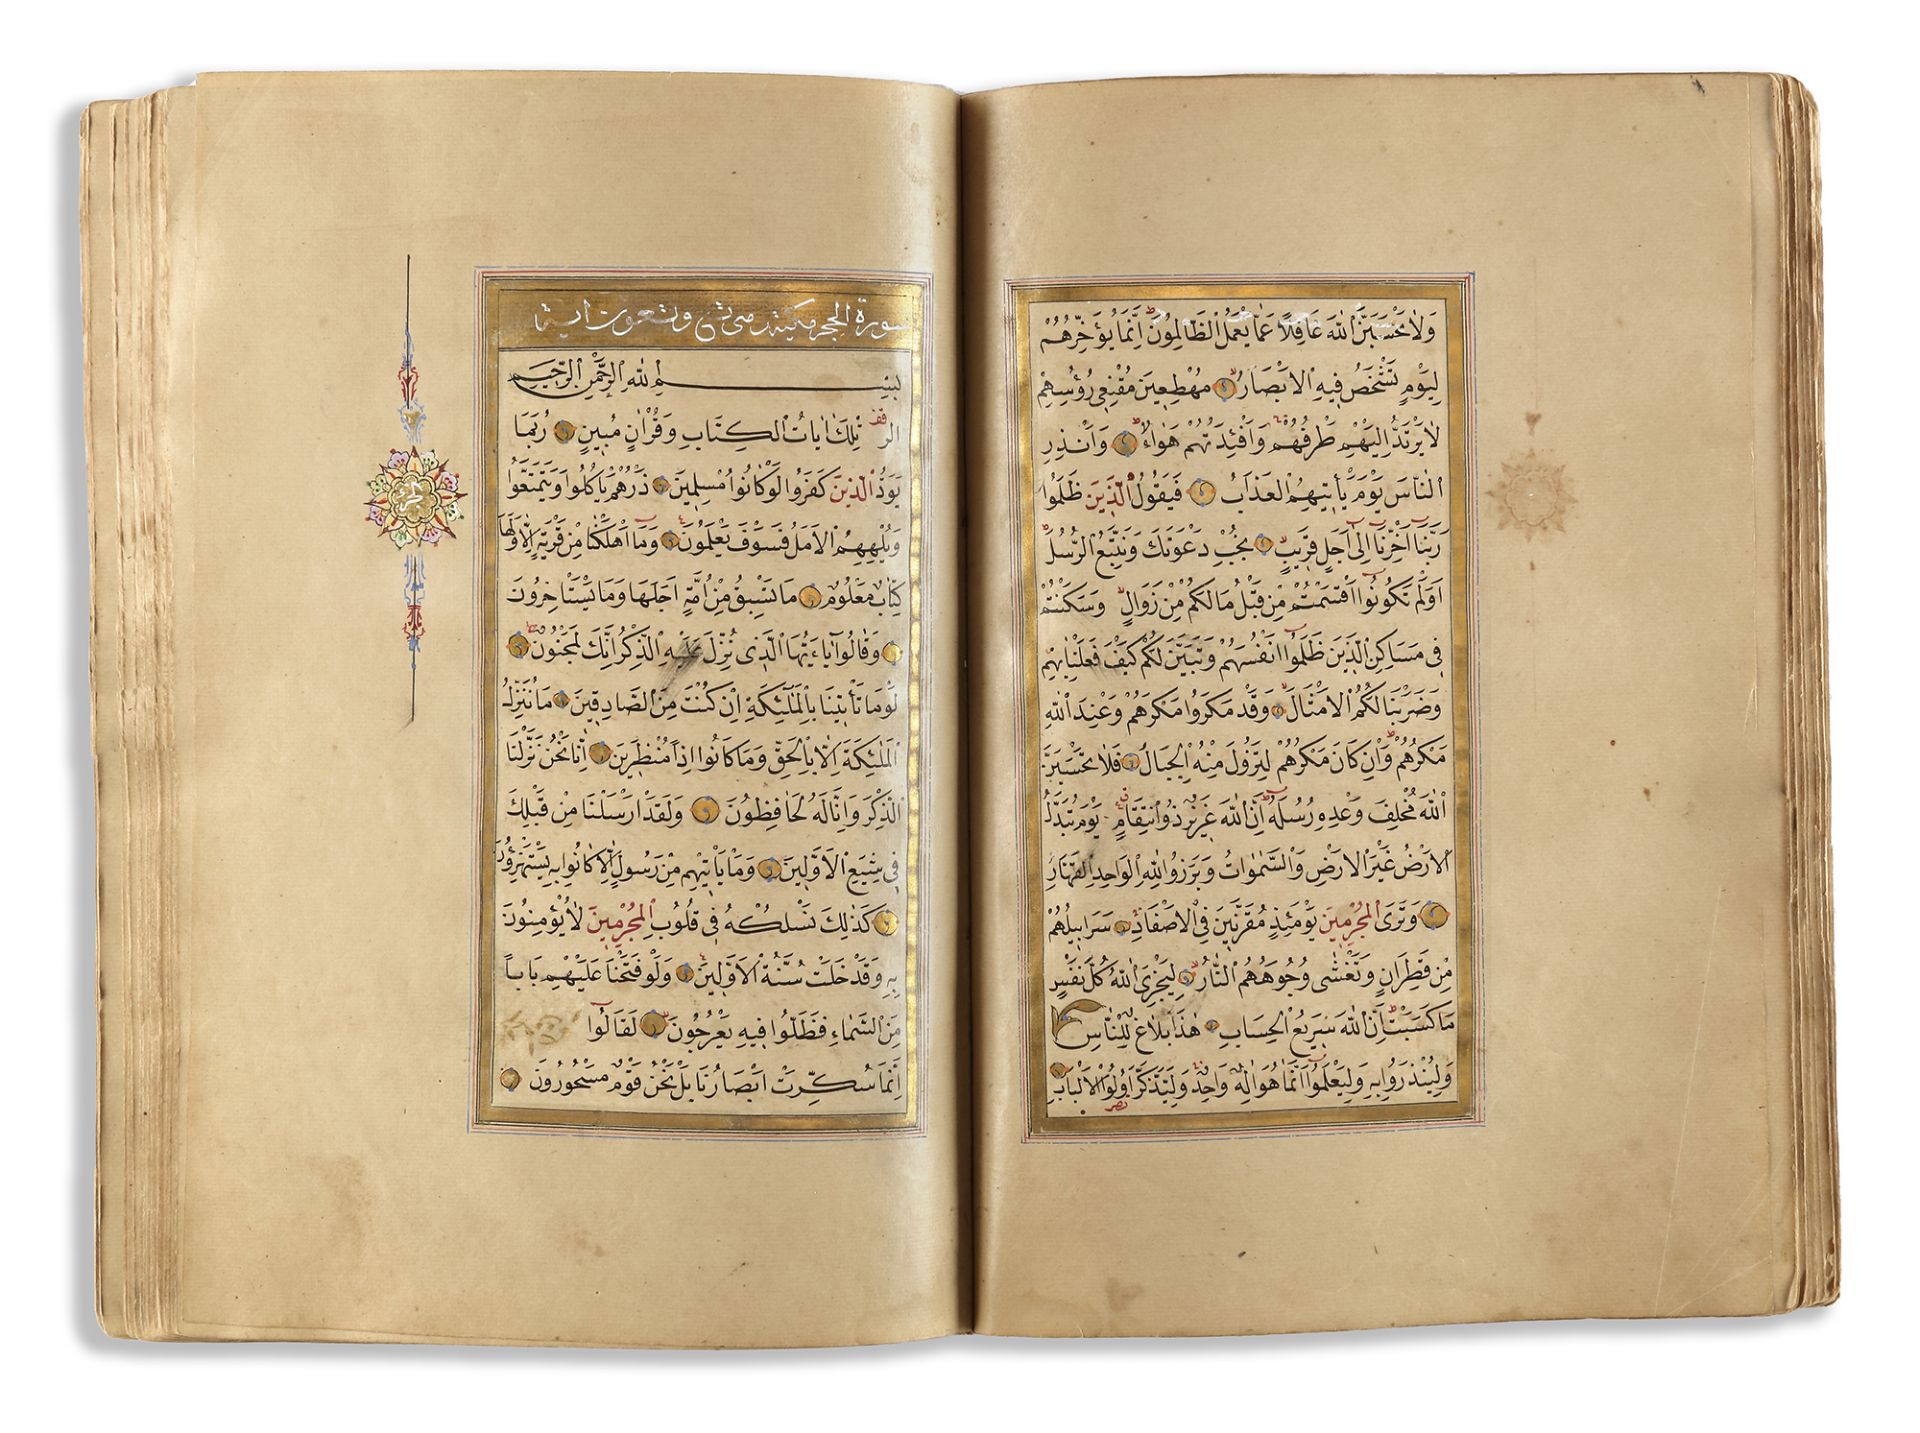 وَلَا تَحْسَبَنَّ اللّٰهَ غَافِلًا عَمَّا يَعْمَلُ الظَّالِمُونَ اِنَّمَا يُؤَخِّرُهُمْ
لِيَوْمٍ تَشْخَصُ فِيهِ الْاَبْصَارُ مُهْطِعِينَ مُقْنِعِي رُؤُسِهِمْ
لَا يَرْتَدُّ اِلَيْهِمْ طَرْفُهُمْ وَاَفْئِدَتُهُمْ هَوَاءٌ وَاَنْذِرِ
النَّاسَ يَوْمَ يَأْتِيهِمُ الْعَذَابُ فَيَقُولُ الَّذِينَ ظَلَمُوا
رَبَّنَا اَخِّرْنَا اِلٰى اَجَلٍ قَرِيبٍ نُجِبْ دَعْوَتَكَ وَنَتَّبِعِ الرُّسُلَ
اَوَلَمْ تَكُونُوا اَقْسَمْتُمْ مِنْ قَبْلُ مَا لَكُمْ مِنْ زَوَالٍ وَسَكَنْتُمْ
فِي مَسَاكِنِ الَّذِينَ ظَلَمُوا اَنْفُسَهُمْ وَتَبَيَّنَ لَكُمْ كَيْفَ فَعَلْنَا بِهِمْ
وَضَرَبْنَا لَكُمُ الْاَمْثَالَ وَقَدْ مَكَرُوا مَكْرَهُمْ وَعِنْدَ اللّٰهِ
مَكْرُهُمْ وَاِنْ كَانَ مَكْرُهُمْ لِتَزُولَ مِنْهُ الْجِبَالُ فَلَا تَحْسَبَنَّ
اللّٰهَ مُخْلِفَ وَعْدِهِ رُسُلَهُ اِنَّ اللّٰهَ عَزِيزٌ ذُو انْتِقَامٍ يَوْمَ تُبَدَّلُ
الْاَرْضُ غَيْرَ الْاَرْضِ وَالسَّمٰوَاتُ وَبَرَزُوا لِلّٰهِ الْوَاحِدِ الْقَهَّارِ
وَتَرَى الْمُجْرِمِينَ يَوْمَئِذٍ مُقَرَّنِينَ فِي الْاَصْفَادِ سَرَابِيلُهُمْ
مِنْ قَطِرَانٍ وَتَغْشٰى وُجُوهَهُمُ النَّارُ لِيَجْزِيَ اللّٰهُ كُلَّ نَفْسٍ
مَا كَسَبَتْ اِنَّ اللّٰهَ سَرِيعُ الْحِسَابِ هٰذَا بَلَاغٌ لِلنَّاسِ
وَلِيُنْذَرُوا بِهِ وَلِيَعْلَمُوا اَنَّمَا هُوَ اِلٰهٌ وَاحِدٌ وَلِيَذَّكَّرَ اُولُوا الْاَلْبَابِ
سورة الحجر مكية وتسعون
بِسْمِ اللّٰهِ الرَّحْمٰنِ الرَّحِيمِ
الر تِلْكَ اٰيَاتُ الْكِتَابِ وَقُرْاٰنٍ مُبِينٍ رُبَمَا
يَوَدُّ الَّذِينَ كَفَرُوا لَوْ كَانُوا مُسْلِمِينَ ذَرْهُمْ يَأْكُلُوا وَيَتَمَتَّعُوا
وَيُلْهِهِمُ الْاَمَلُ فَسَوْفَ يَعْلَمُونَ وَمَا اَهْلَكْنَا مِنْ قَرْيَةٍ اِلَّا وَلَهَا
كِتَابٌ مَعْلُومٌ مَا تَسْبِقُ مِنْ اُمَّةٍ اَجَلَهَا وَمَا يَسْتَأْخِرُونَ
وَقَالُوا يَا اَيُّهَا الَّذِي نُزِّلَ عَلَيْهِ الذِّكْرُ اِنَّكَ لَمَجْنُونٌ
لَوْ مَا تَأْتِينَا بِالْمَلٰئِكَةِ اِنْ كُنْتَ مِنَ الصَّادِقِينَ مَا نُنَزِّلُ
الْمَلٰئِكَةَ اِلَّا بِالْحَقِّ وَمَا كَانُوا اِذًا مُنْظَرِينَ اِنَّا نَحْنُ نَزَّلْنَا
الذِّكْرَ وَاِنَّا لَهُ لَحَافِظُونَ وَلَقَدْ اَرْسَلْنَا مِنْ قَبْلِكَ
فِي شِيَعِ الْاَوَّلِينَ وَمَا يَأْتِيهِمْ مِنْ رَسُولٍ اِلَّا كَانُوا بِهِ يَسْتَهْزِؤُنَ
كَذٰلِكَ نَسْلُكُهُ فِي قُلُوبِ الْمُجْرِمِينَ لَا يُؤْمِنُونَ
بِهِ وَقَدْ خَلَتْ سُنَّةُ الْاَوَّلِينَ وَلَوْ فَتَحْنَا عَلَيْهِمْ بَابًا
مِنَ السَّمَاءِ فَظَلُّوا فِيهِ يَعْرُجُونَ لَقَالُوا
اِنَّمَا سُكِّرَتْ اَبْصَارُنَا بَلْ نَحْنُ قَوْمٌ مَسْحُورُونَ